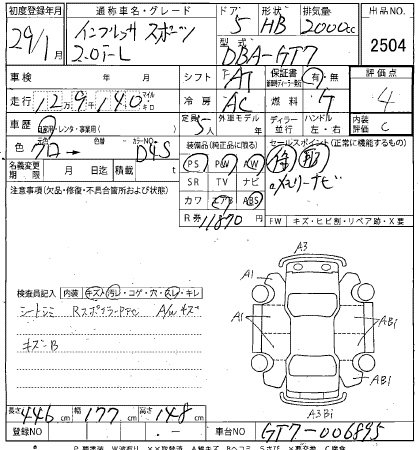 初度登録年月 通称車名・グレード ドア 形状 排気量 出品NO.
29/1月 インプレッサ スポーツ 2.0i-L 5 HB 2000cc 2504
型式 DBA-GT7
車検 年 月 シフト AT 保証書 有・無 評価点 4
走行 12万9千140 マイル キロ 冷房 AC 燃料 ガ
車歴 自家用・レンタ・事業用( ) 定員 5人 外車モデル 年 ディーラー 並行 ハンドル 左・右 内装評価 C
色 クロ → 色替 カラーNO. D4S 装備品(純正品に限る) セールスポイント(正常に機能するもの)
PS PW AW
名義変更期限 月 日迄 積載 t SR TV ナビ
カワ エアB ABS
メモリーナビ
注意事項(欠品・修復・不具合箇所および状態) R券 11870 円 FW キズ・ヒビ割・リペア跡・X要
検査員記入 内装 キズ・汚レ・コゲ・穴・スレ・キレ
シートシミ Rスポイラーアンテナ A/W キズ
キズーB
A3
A1 A1
A1 AB1
AB1
A3B1
長さ 446cm 幅 177cm 高さ 148cm
登録NO 車台NO GT7-006895